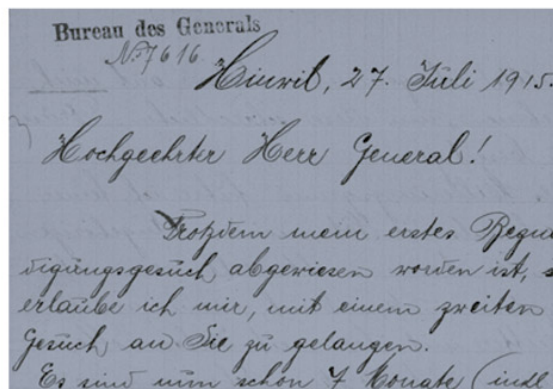 Bureau des Generals
No 7616
Hinwil, 27. Juli 1915.
Hochgeehrter Herr General!
Trotzdem mein erstes Begna
digungsgesuch abgewiesen worden ist, s
erlaube ich mir, mit einem zweiten
Gesuch an Sie zu gelangen.
Es sind nun schon 7 Monate (inkl